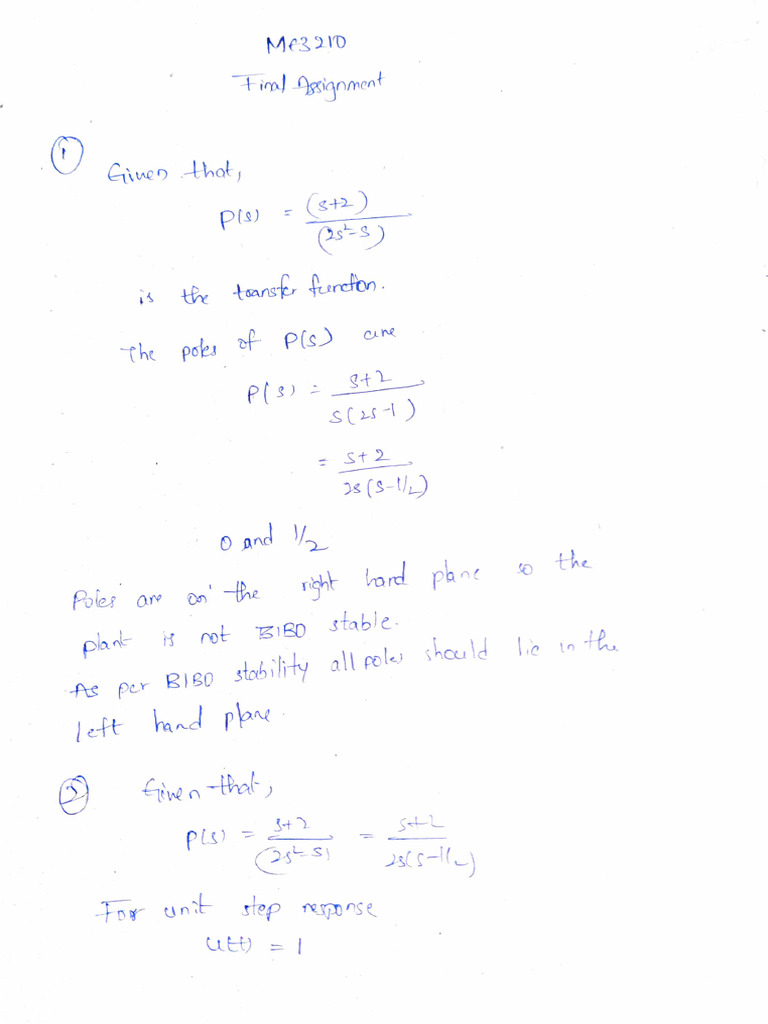 ME3210
Final Assignment
1
Given that,
P(s) = (s+2) / (2s²-s)
is the transfer function.
The poles of P(s) are
P(s) = s+2 / s(2s-1)
= s+2 / 2s(s-1/2)
0 and 1/2
Poles are on the right hand plane so the
plant is not BIBO stable.
As per BIBO stability all poles should lie in the
left hand plane.
2
Given that,
P(s) = s+2 / (2s²-s) = s+2 / 2s(s-1/2)
For unit step response
u(t) = 1